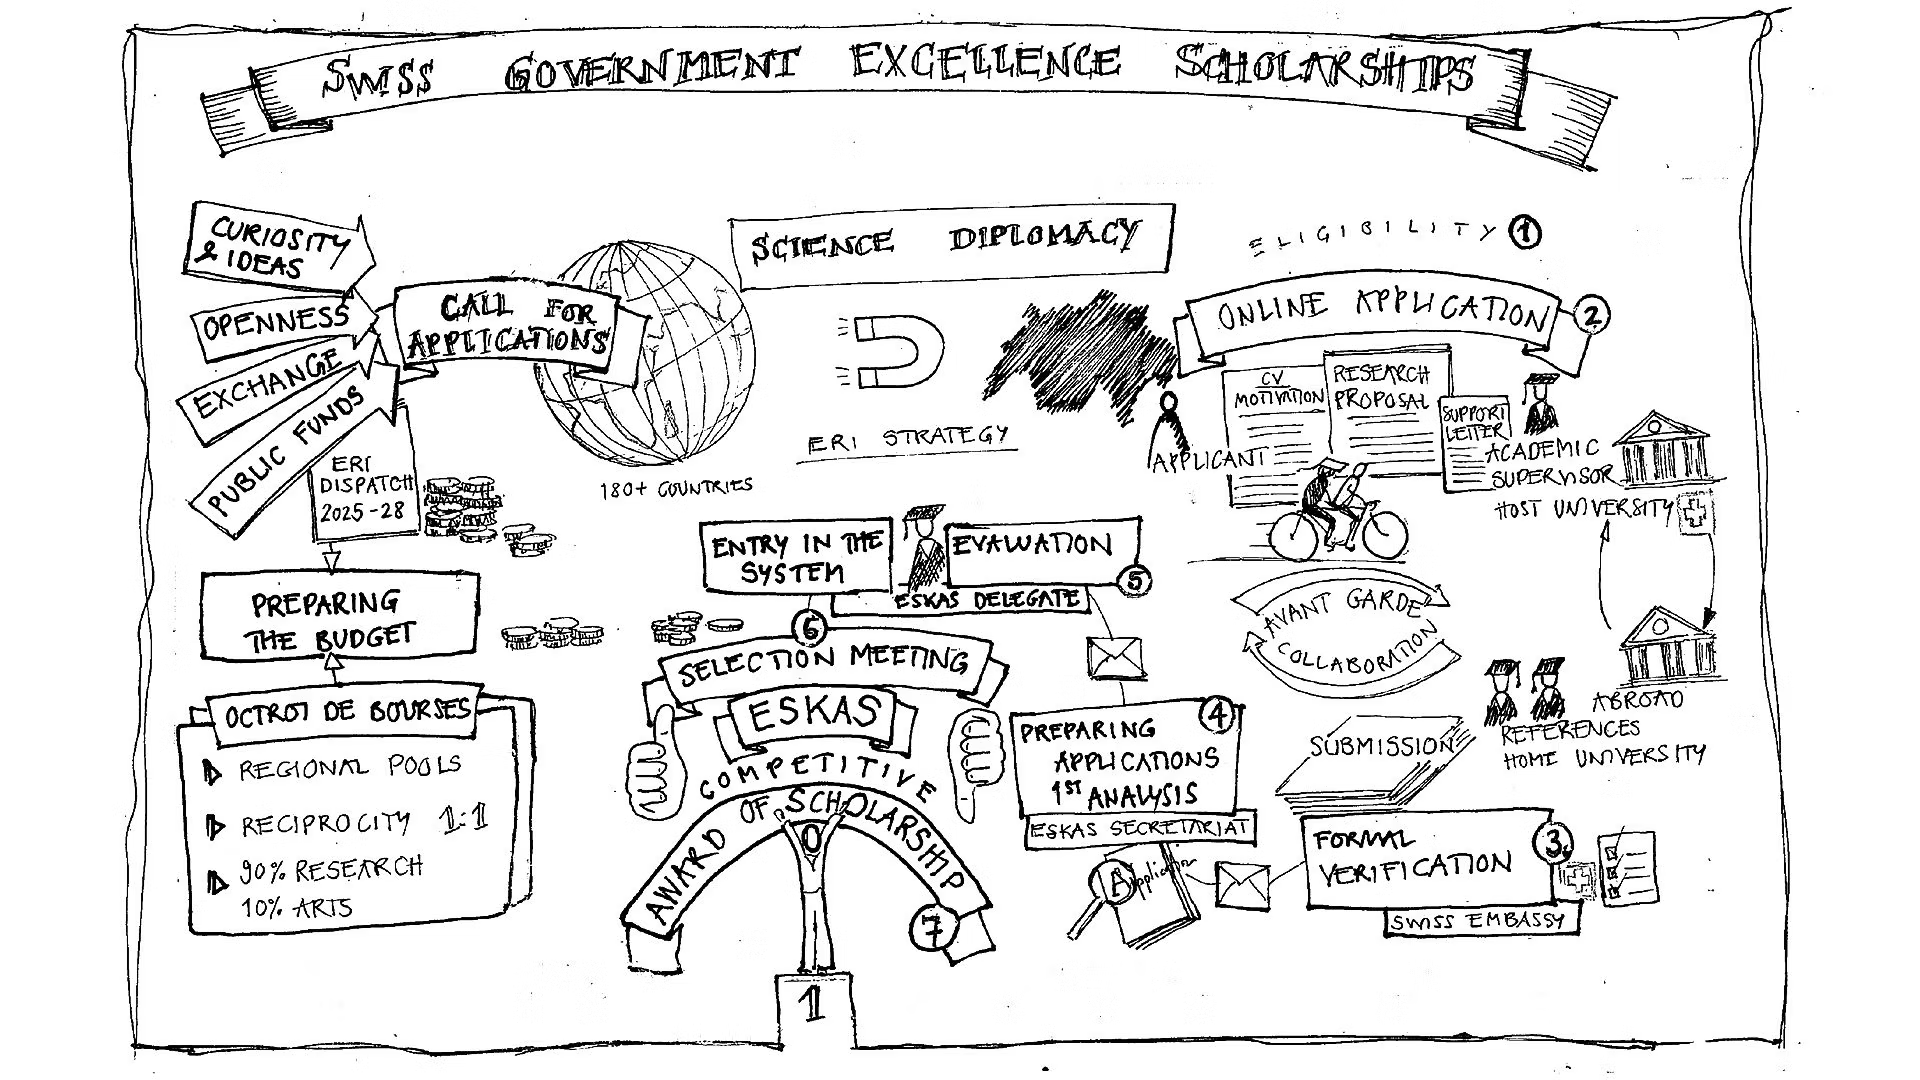 SWISS GOVERNMENT EXCELLENCE SCHOLARSHIPS
CURIOSITY
& IDEAS
OPENNESS
EXCHANGE
PUBLIC FUNDS
CALL FOR
APPLICATIONS
180+ COUNTRIES
ERI
DISPATCH
2025-28
PREPARING
THE BUDGET
OCTROI DE BOURSES
REGIONAL POOLS
RECIPROCITY 1:1
90% RESEARCH
10% ARTS
SCIENCE DIPLOMACY
ERI STRATEGY
ELIGIBILITY 1
ONLINE APPLICATION 2
CV
MOTIVATION
RESEARCH
PROPOSAL
SUPPORT
LETTER
APPLICANT
ACADEMIC
SUPERVISOR
HOST UNIVERSITY
AVANT GARDE
COLLABORATION
ABROAD
REFERENCES
HOME UNIVERSITY
SUBMISSION
FORMAL
VERIFICATION
3
SWISS EMBASSY
PREPARING
APPLICATIONS
1ST ANALYSIS
4
ESKAS SECRETARIAT
Application
EVALUATION
5
ESKAS DELEGATE
ENTRY IN THE
SYSTEM
6
SELECTION MEETING
ESKAS
COMPETITIVE
AWARD OF SCHOLARSHIP
7
1